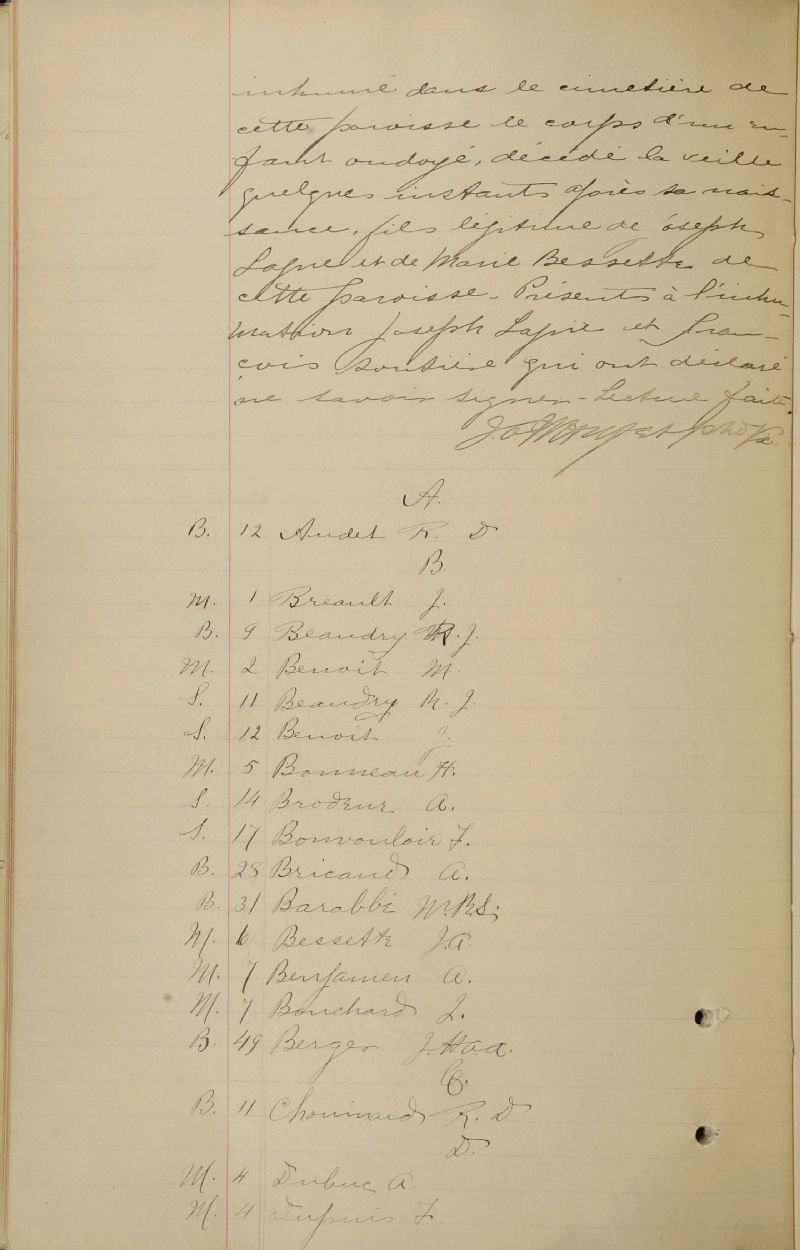 inhumé dans le cimetière de
cette paroisse le corps d'un en-
fant ondoyé, décédé la veille
quelques instants après sa nais-
sance, fils légitime de Joseph
Lapré et de Marie Bessette de
cette paroisse. Présents à l'inhu-
mation Joseph Lapré et Fran-
çois soutière qui ont déclaré
ne savoir signer. Lecture faite.
ptre
A.
B. 12 Audet R. D
B.
M. 1 Breault J.
B. 9 Beaudry R. J.
M. 2 Benoit M.
S. 11 Beaudry R. J.
S. 12 Benoit J.
M. 5 Bonneau H.
S. 14 Brodeur A.
S. 17 Bonvouloir F.
B. 28 Bricaud A.
B. 31 Barabbé M.R.S.
M. 6 Bessette J.A.
M. 7 Benjamen A.
M. 7 Bouchard J.
B. 49 Berger J.
C.
B. 11 Chouinard R. D
D.
M. 4 Dubuc A.
M. 4 Dupuis F.